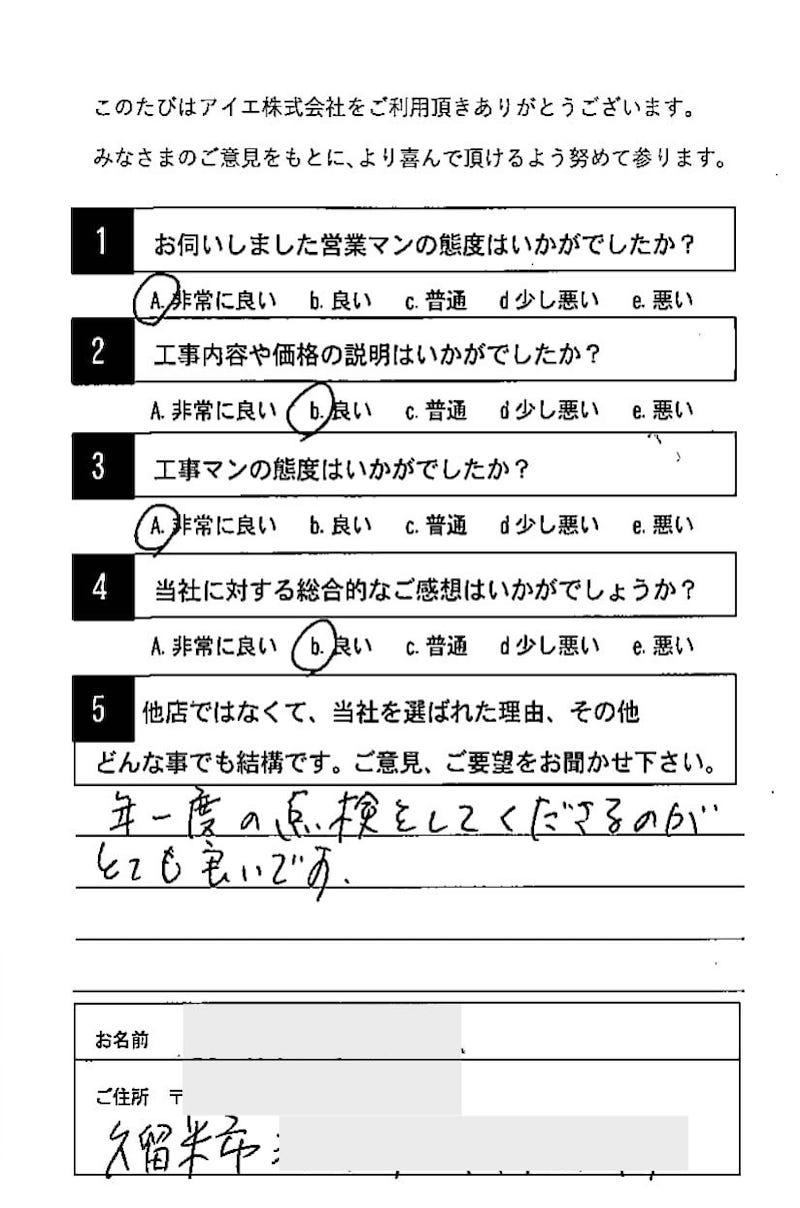 このたびはアイエ株式会社をご利用頂きありがとうございます。
みなさまのご意見をもとに、より喜んで頂けるよう努めて参ります。
1 お伺いしました営業マンの態度はいかがでしたか?
A. 非常に良い b. 良い c. 普通 d 少し悪い e. 悪い
2 工事内容や価格の説明はいかがでしたか?
A. 非常に良い b. 良い c. 普通 d 少し悪い e. 悪い
3 工事マンの態度はいかがでしたか?
A. 非常に良い b. 良い c. 普通 d 少し悪い e. 悪い
4 当社に対する総合的なご感想はいかがでしょうか?
A. 非常に良い b. 良い c. 普通 d 少し悪い e. 悪い
5 他店ではなくて、当社を選ばれた理由、その他
どんな事でも結構です。ご意見、ご要望をお聞かせ下さい。
年一度の点検をしてくださるのが
とても良いです.
お名前
ご住所 〒
久留米市